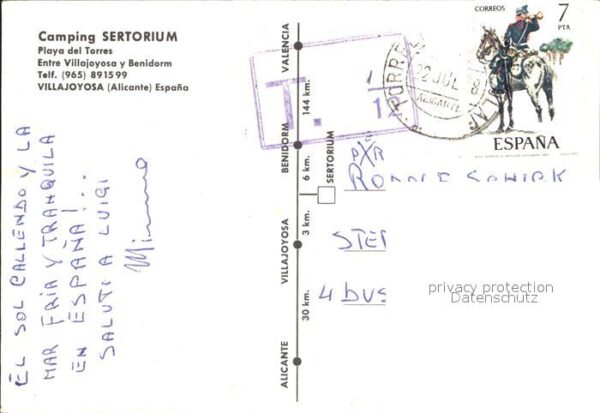 Camping SERTORIUM
Playa del Torres
Entre Villajoyosa y Benidorm
Telf. (965) 891599
VILLAJOYOSA (Alicante) España
EL SOL CALLENDO Y LA
MAR FRIA Y TRANQUILA
EN ESPAÑA!..
SALUTI A LUIGI
VALENCIA
144 km.
BENIDORM
6 km.
SERTORIUM
3 km.
VILLAJOYOSA
30 km.
ALICANTE
T.
1
12
CORREOS
7
PTA
ESPAÑA
CORRE
JUL
ALICANTE
STEF
4 DUS
privacy protection
Datenschutz